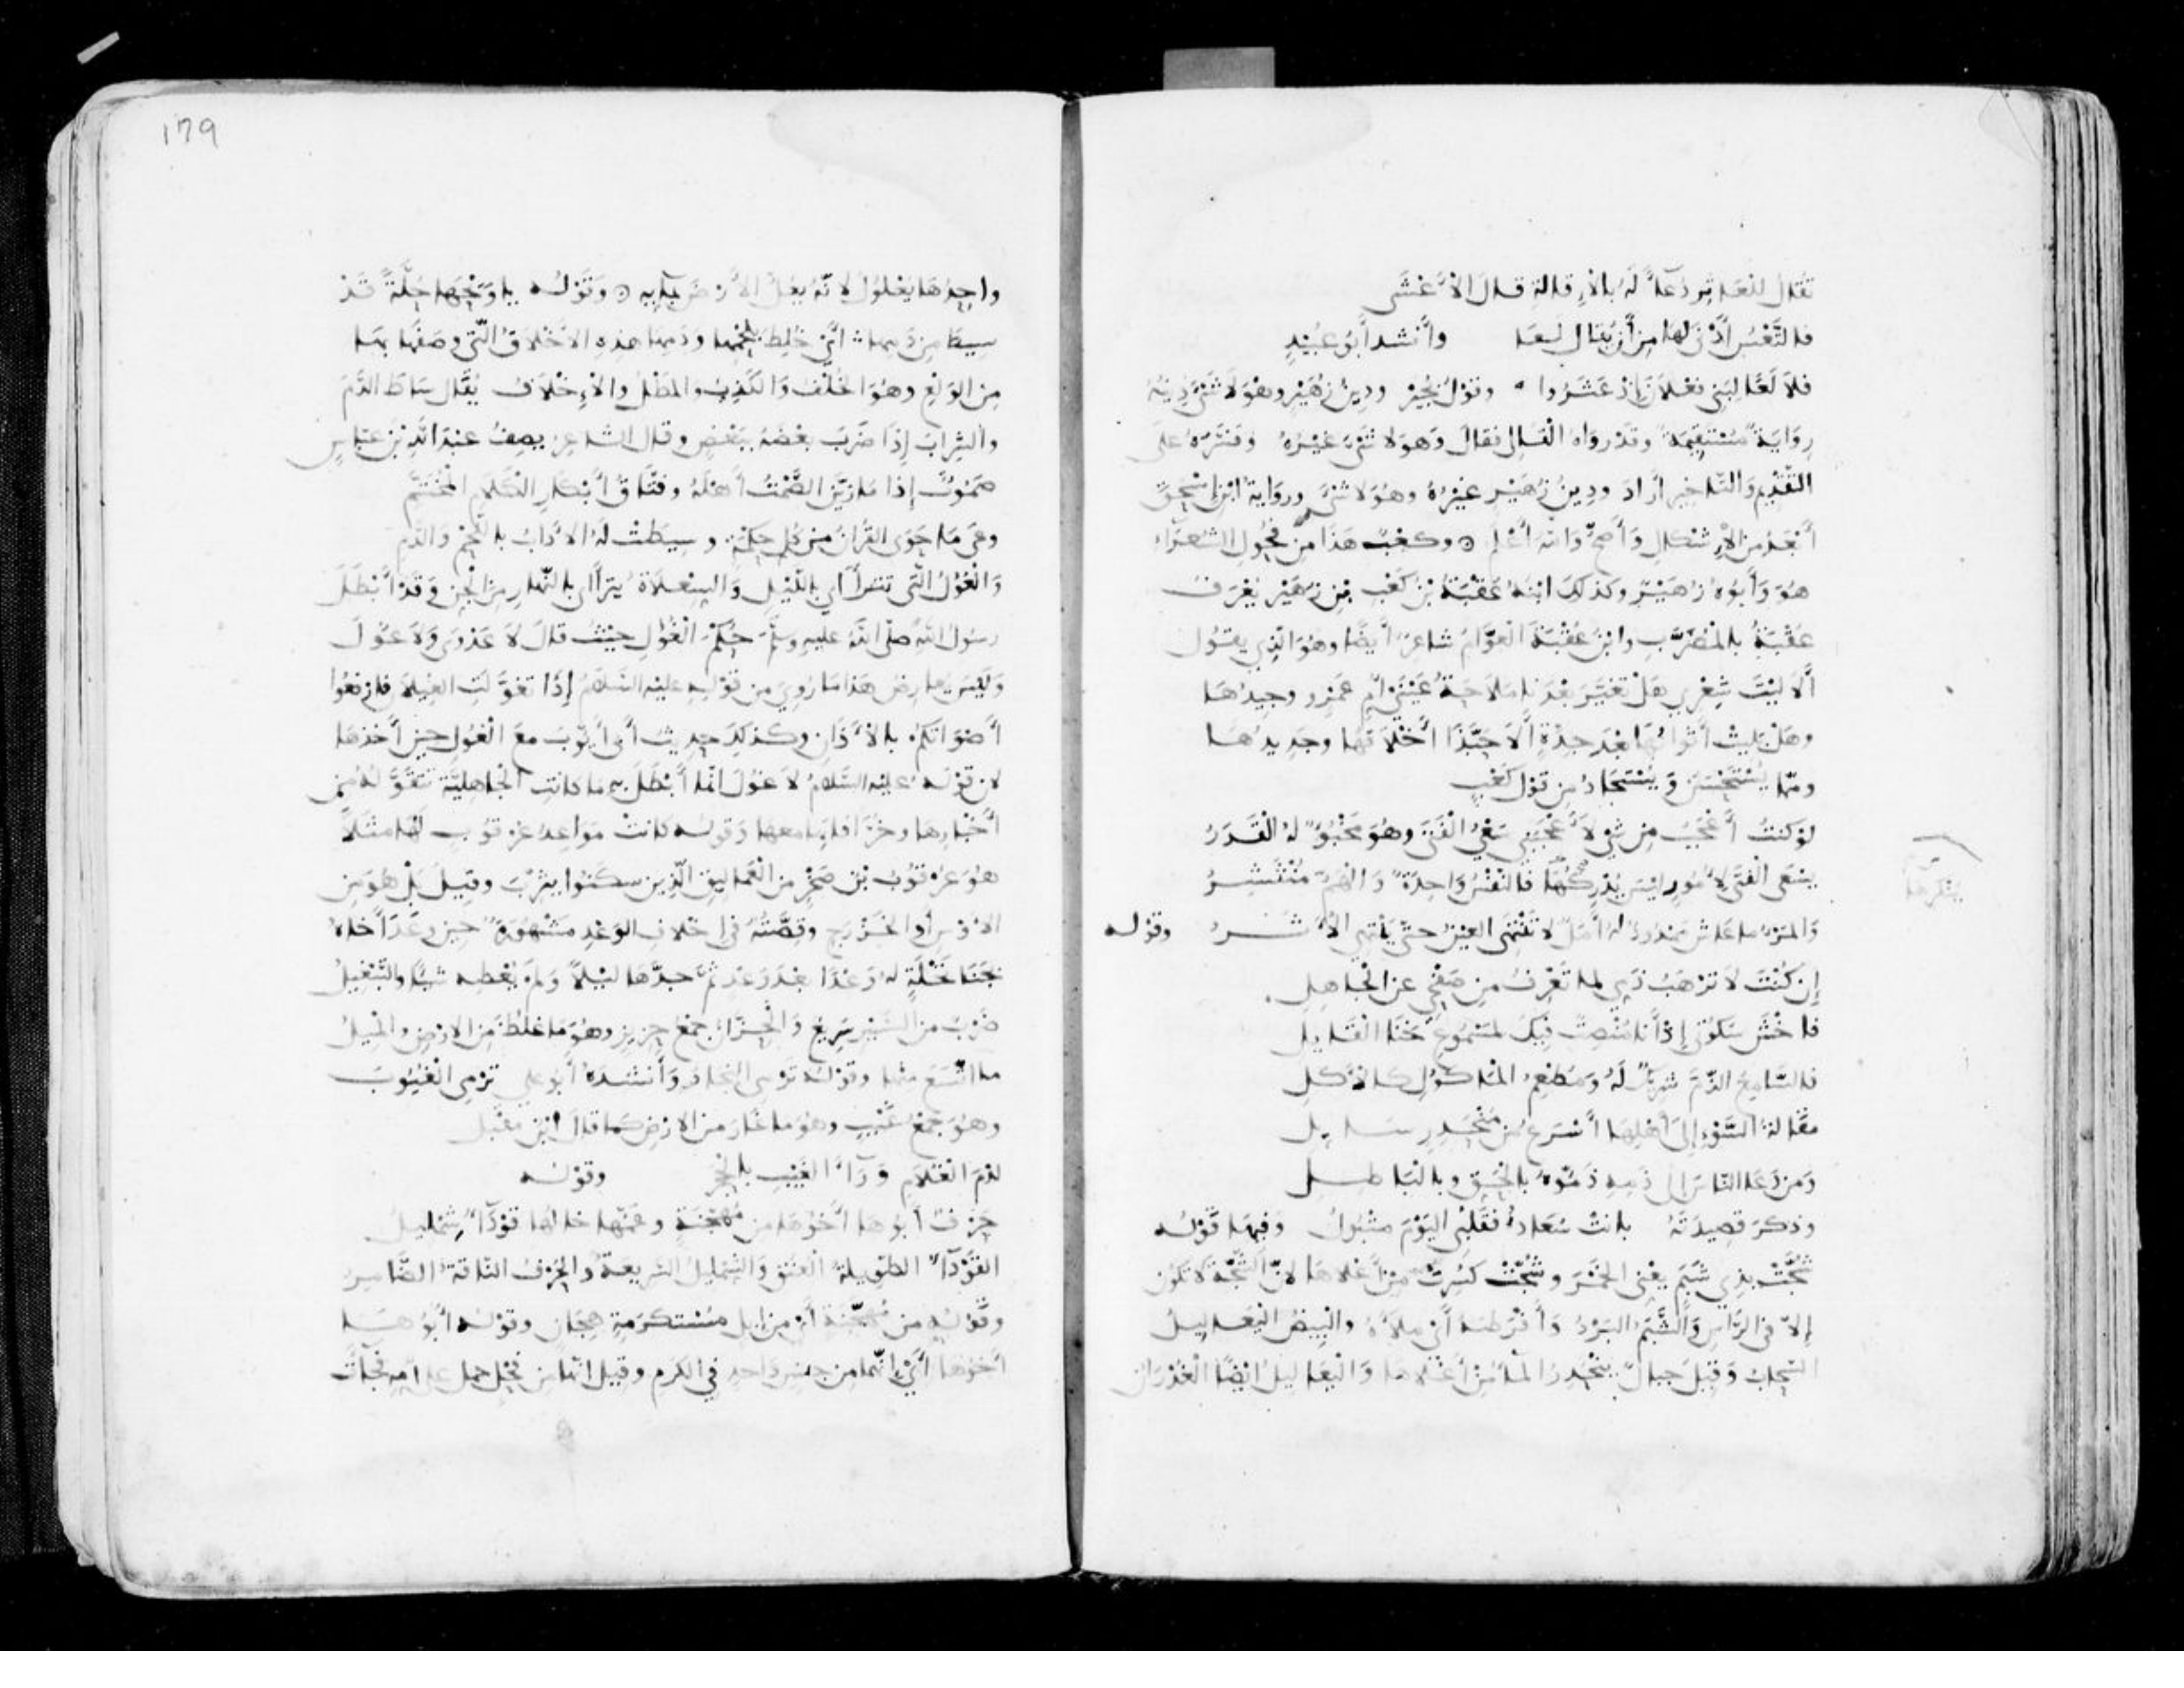 تقال للعاثر دعاءً له بالإقالة قال الأعشى
فالتعس أدنى لها من أن يقال لعا وأنشد أبو عبيد
فلا لعا لبني فعلان إذ عثروا وقول بجير ودين زهير وهو لا شيء دينه
رواية مستقيمة وقد رواه القالي فقال وهو لا شيء غيره وفسره على
التقديم والتأخير أراد ودين زهير غيره وهو لا شيء ورواية ابن إسحق
أبعد من الإشكال وأصح والله أعلم وكعب هذا من فحول الشعراء
هو وأبوه زهير وكذلك ابنه عقبة بن كعب بن زهير يعرف
عقبة بالمضرب وابن عقبة العوام شاعر أيضا وهو الذي يقول
ألا ليت شعري هل تغير بعدنا ملاحة عيني أم عمرو وجيدها
وهل بليت أثوابها بعد جدة ألا حبذا أخلاقها وجديدها
ومما يستحسن ويستجاد من قول كعب
لو كنت أعجب من شيء لأعجبني سعي الفتى وهو مخبوء له القدر
يسعى الفتى لأمور ليس يدركها فالنفس واحدة والهم منتشر
والمرء ما عاش ممدود له أمل لا تنتهي العين حتى ينتهي الأثر وقوله
إن كنت لا ترهب ذمي لما تعرف من صفحي عن الجاهل
فاخش سكوتي إذ أنا منصت فيك لمسموع خنا القايل
فالسامع الذم شريك له ومطعم المأكول كالآكل
مقالة السوء إلى أهلها أسرع من منحدر سايل
ومن دعا الناس إلى ذمه ذموه بالحق وبالباطل
وذكر قصيدته بانت سعاد فقلبي اليوم متبول وفيها قوله
شجت بذي شبم يعني الخمر وشجت كسرت من أعلاها لأن الشجة لا تكون
إلا في الرأس والشبم البرد وأفرطه أي ملأه والبيض اليعاليل
السحاب وقيل جبال ينحدر الماء من أعلاها واليعاليل أيضا الغدران
ينكرها
١٦٩
واحدها يعلول لأنه يعل الأرض بمايه وقوله يا ويحها خلة قد
سيط من دمها أي خلط بلحمها ودمها هذه الأخلاق التي وصفها بها
من الولع وهو الخلف والكذب والمطل والإخلاف يقال ساط الدم
والشراب إذا ضرب بعضه ببعض وقال الشاعر يصف عبد الله بن عباس
صموت إذا ما زين الصمت أهله وفتاق أبكار الكلام المختم
وعى ما حوى القرآن من كل حكمة وسيطت له الآداب باللحم والدم
والغول التي تتراآى بالليل والسعلاة يتراآى بالنهار من الجن وقد أبطل
رسول الله صلى الله عليه وسلم حكم الغول حيث قال لا عدوى ولا غول
وليس يعارض هذا ما روي من قوله عليه السلام إذا تغولت الغيلان فارفعوا
أصواتكم بالأذان وكذلك حديث أبي أيوب مع الغول حين أخذها
لأن قوله عليه السلام لا غول إنما أبطل به ما كانت الجاهلية تتقوله من
أخبارها وخرافاتها معها وقوله كانت مواعيد عرقوب لها مثلا
هو عرقوب بن صخر من العماليق الذين سكنوا يثرب وقيل بل هو من
الأوس أو الخزرج وقصته في إخلاف الوعد مشهورة حين وعد أخاه
جنا نخلة له وعدا بعد وعد ثم جدها ليلا ولم يعطه شيا والتبغيل
ضرب من السير سريع والحزان جمع حزيز وهو ما غلظ من الأرض والميل
ما اتسع منها وقوله ترمي النجاد وأنشده أبو علي ترمي الغيوب
وهو جمع غيب وهو ما غار من الأرض كما قال ابن مقبل
لدم الغلام وراء الغيب بالحجر وقوله
حرف أبوها أخوها من مهجنة وعمها خالها قوداء شمليل
القوداء الطويلة العنق والشمليل السريعة والحرف الناقة الضامر
وقوله من مهجنة أي من إبل مستكرمة هجان وقوله أبوها
أخوها أي إنها من جنس واحد في الكرم وقيل إنها من فحل حمل على أمه فجاءت